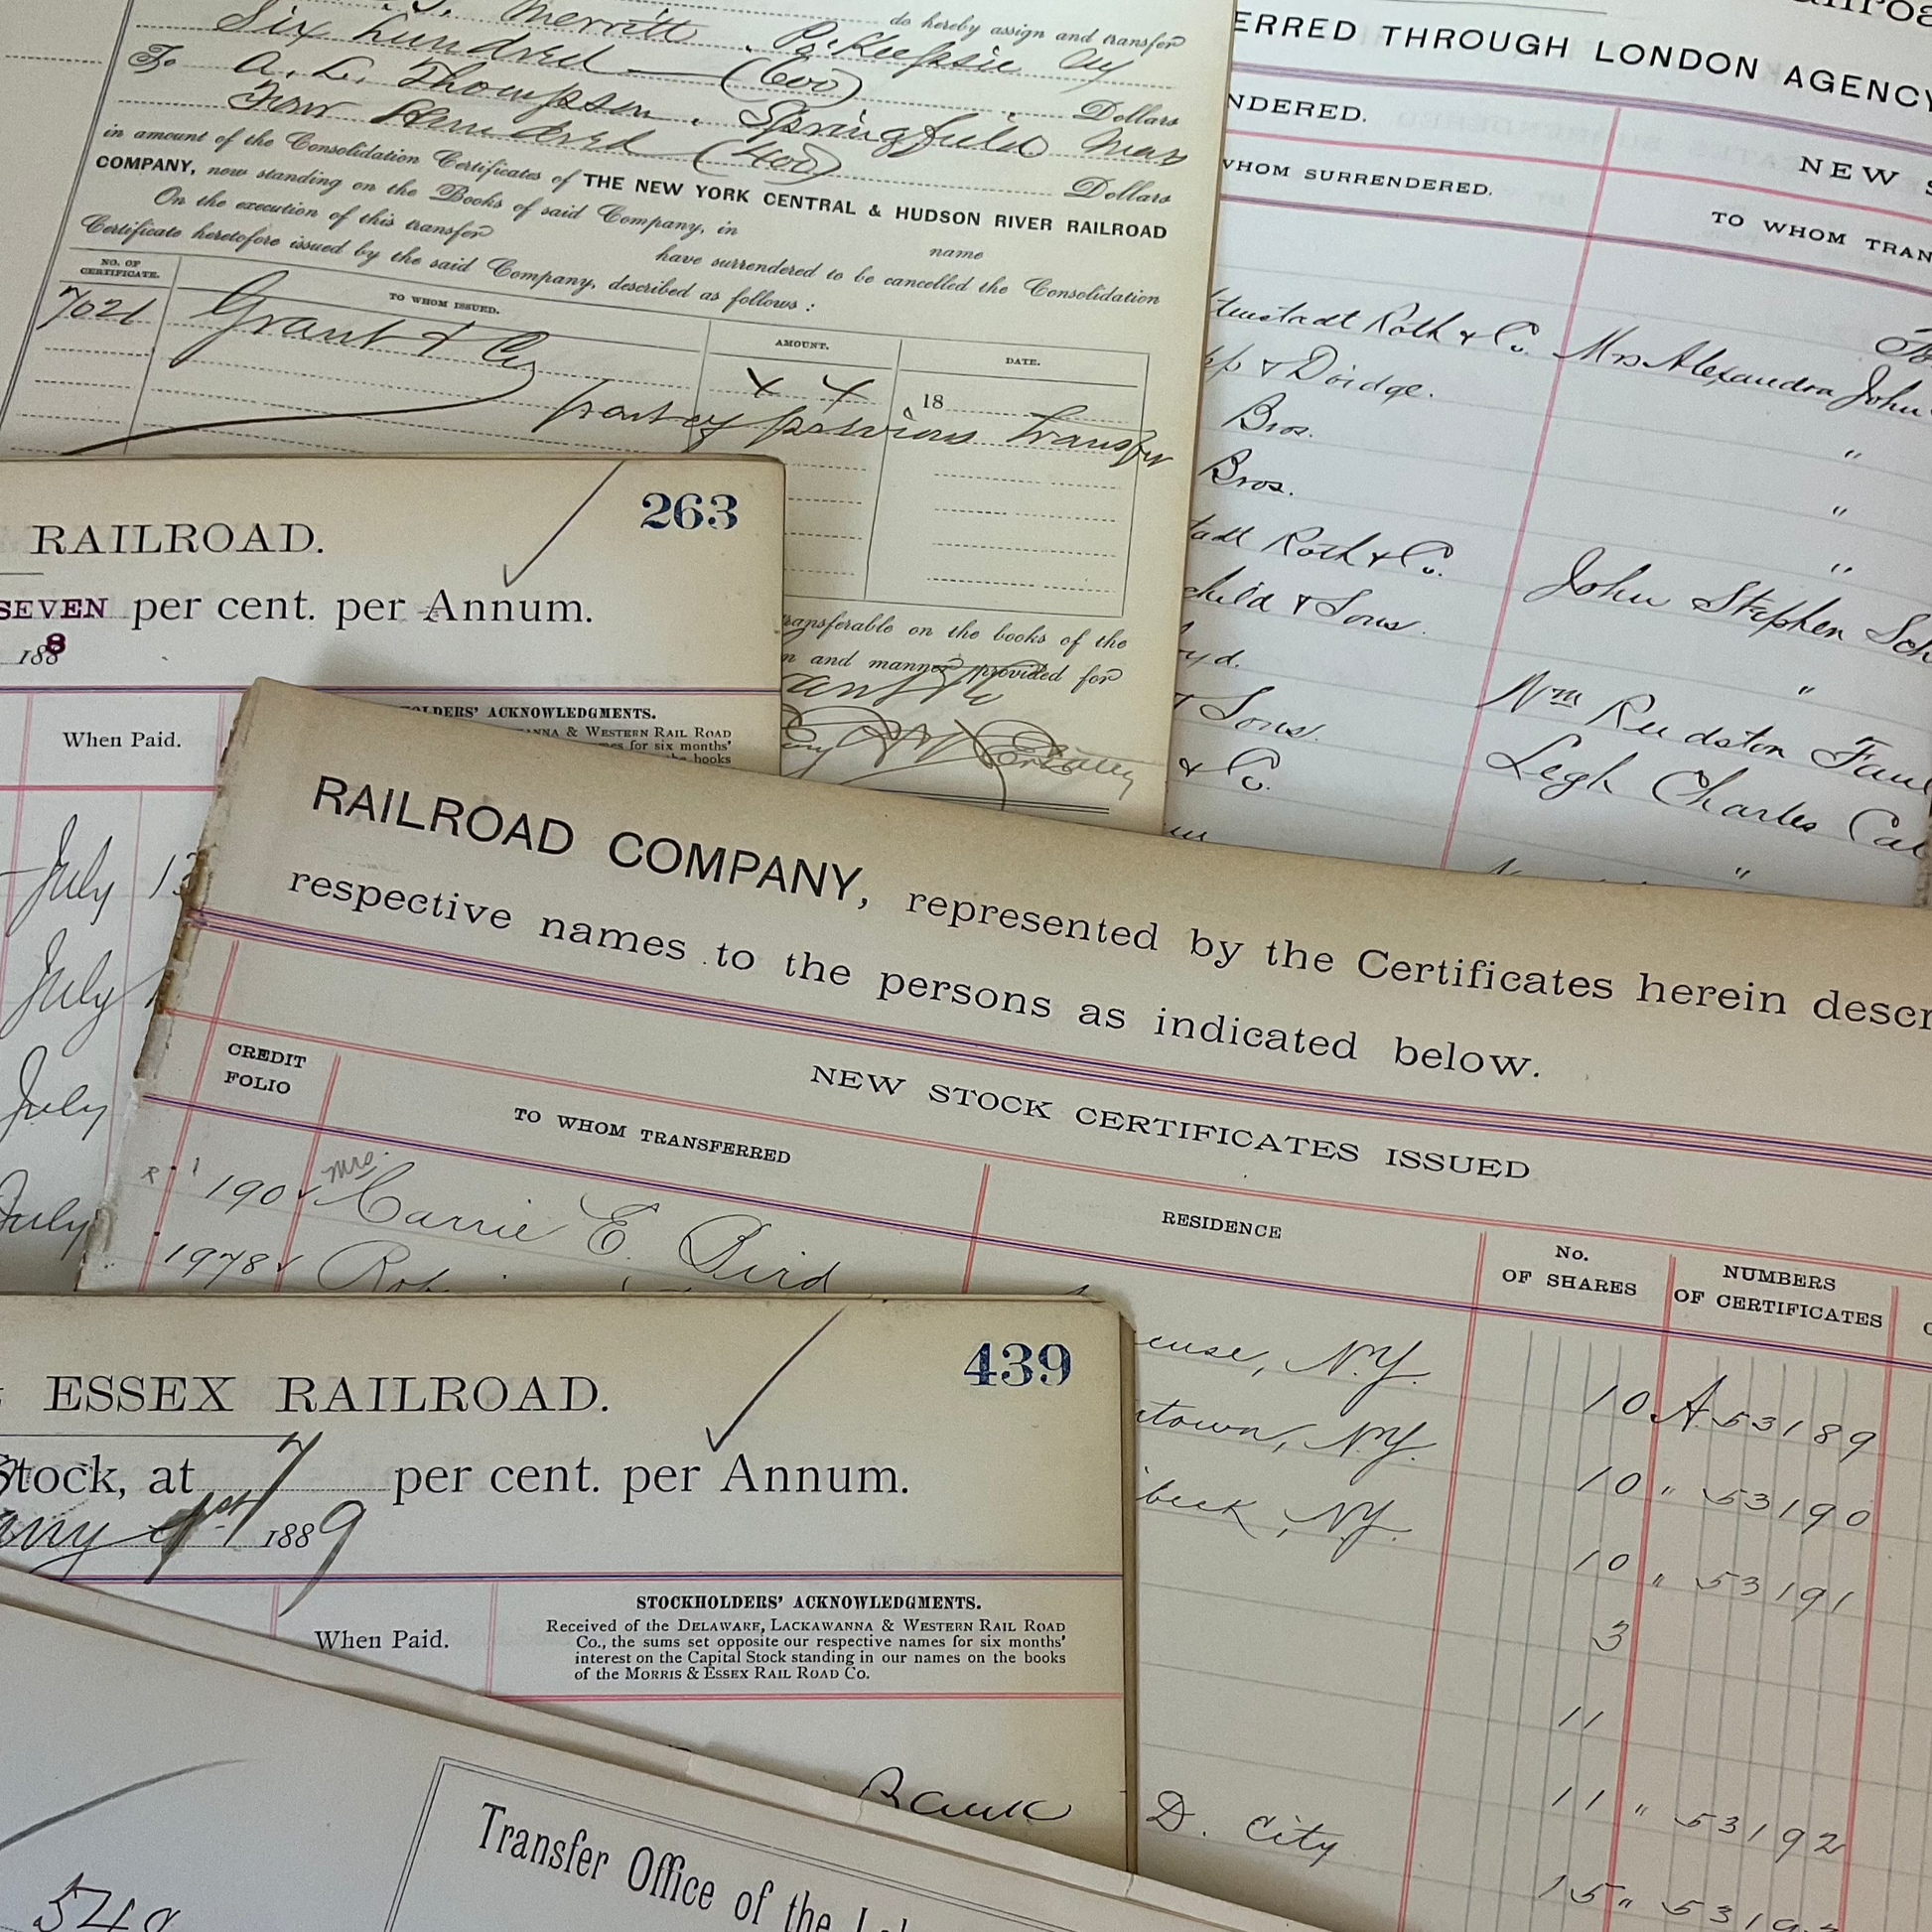 Merritt, Po'Keepsie NY do hereby assign and transfer
Six hundred (600) Dollars
To A. L. Thompson, Springfield Mass
Four Hundred (400) Dollars
in amount of the Consolidation Certificates of THE NEW YORK CENTRAL & HUDSON RIVER RAILROAD
COMPANY, now standing on the Books of said Company, in name
On the execution of this transfer have surrendered to be cancelled the Consolidation
Certificate heretofore issued by the said Company, described as follows:
NO. OF CERTIFICATE. TO WHOM ISSUED. AMOUNT. DATE.
7021 Grant & Co 18
part of previous transfer
transferable on the books of the
and manner provided for
ERRED THROUGH LONDON AGENCY
NDERED. NEW
WHOM SURRENDERED. TO WHOM TRAN
Roth & Co. Mrs Alexandra John
& Doidge. "
Bros. "
Bros. "
tadt Roth & Co. John Stephen Sch
child & Sons. "
yd. Wm Rudston
& Sons. Leigh Charles
& Co. "
263
RAILROAD.
SEVEN per cent. per Annum.
1888
HOLDERS' ACKNOWLEDGMENTS.
NNA & WESTERN RAIL ROAD
es for six months'
he books
When Paid.
July 13
July
July
July
RAILROAD COMPANY, represented by the Certificates herein descr
respective names to the persons as indicated below.
NEW STOCK CERTIFICATES ISSUED
CREDIT FOLIO TO WHOM TRANSFERRED RESIDENCE No. OF SHARES NUMBERS OF CERTIFICATES
190 Mrs. Carrie E. Bird cuse, N.Y. 10 A 53189
1978 town, N.Y. 10 " 53190
beck, N.Y. 10 " 53191
3
11
D. City 11 " 53192
15 " 5319
439
ESSEX RAILROAD.
Stock, at 7 per cent. per Annum.
1st 1889
When Paid.
STOCKHOLDERS' ACKNOWLEDGMENTS.
Received of the DELAWARE, LACKAWANNA & WESTERN RAIL ROAD
Co., the sums set opposite our respective names for six months'
interest on the Capital Stock standing in our names on the books
of the MORRIS & ESSEX RAIL ROAD CO.
Bank
Transfer Office of the